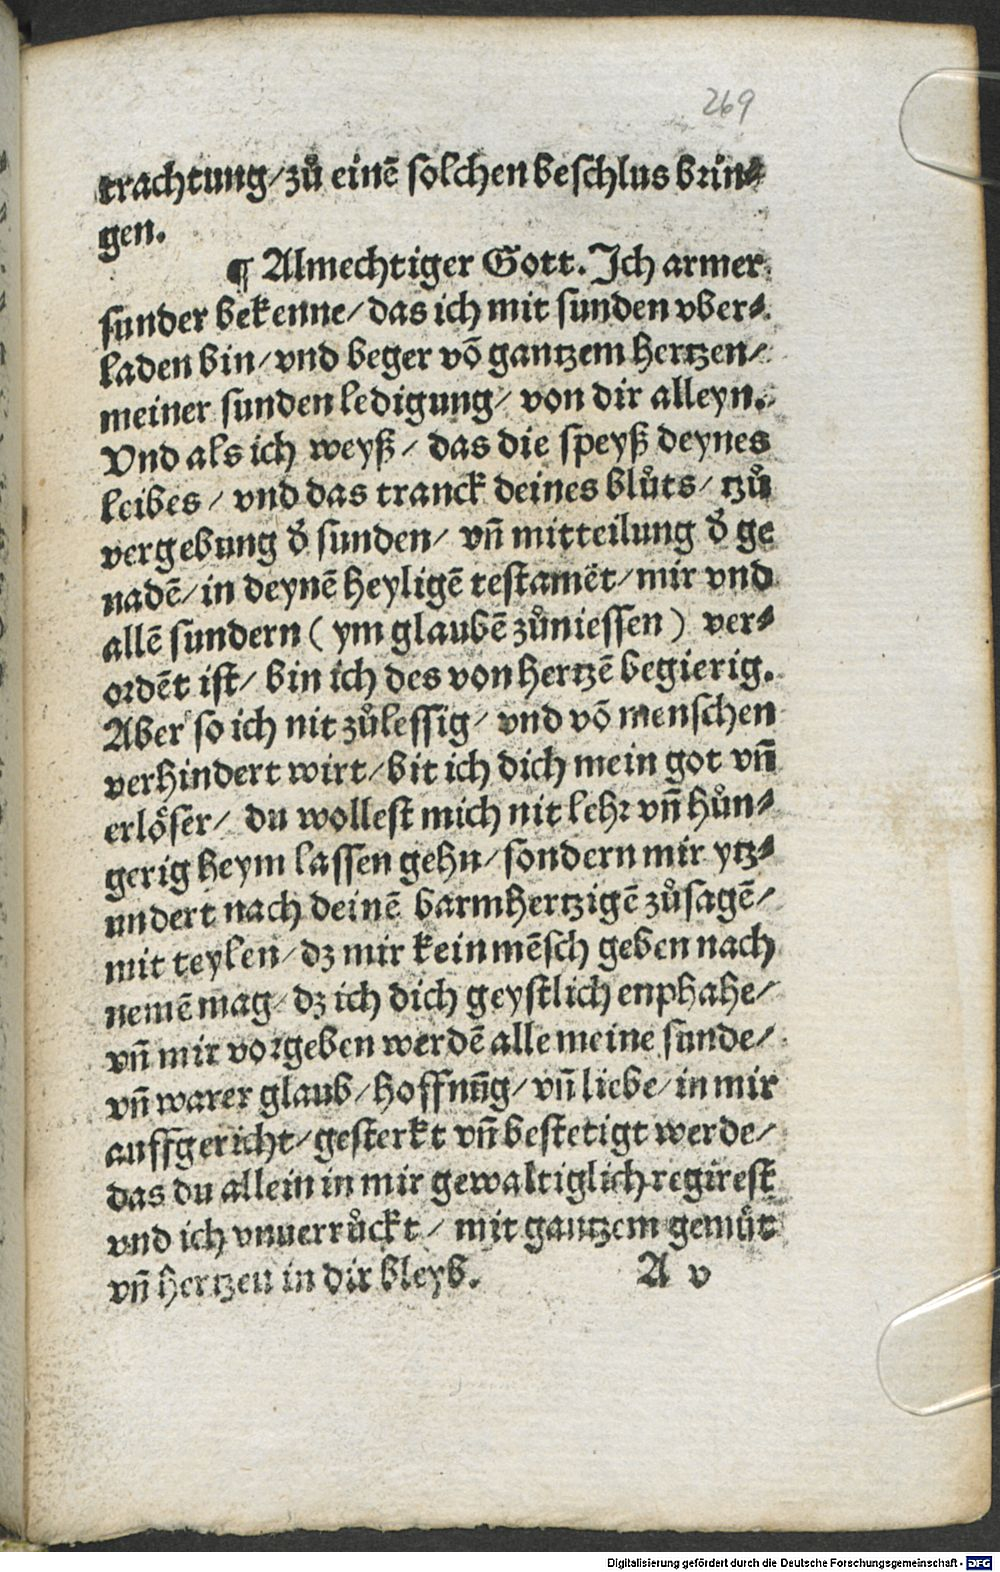 269
trachtung/ zů einē solchen beschlus brin⸗
gen.
¶ Almechtiger Gott. Ich armer
sunder bekenne/ das ich mit sunden vber⸗
laden bin/ vnd beger vō gantzem hertzen/
meiner sunden ledigung/ von dir alleyn.
Vnd als ich weyß/ das die speyß deynes
leibes/ vnd das tranck deines blůts/ tzů
vergebung d̕ sunden/ vn̄ mitteilung d̕ ge
nadē/ in deynē heyligē testamēt/ mir vnd
allē sundern ( ym glaubē zůniessen ) ver⸗
ordēt ist/ bin ich des von hertzē begierig.
Aber so ich nit zůlessig/ vnd vō menschen
verhindert wirt/ bit ich dich mein got vn̄
erlöser/ du wollest mich nit lehr vn̄ hůn⸗
gerig heym lassen gehn/ sondern mir ytz⸗
undert nach deinē barmhertzigē zůsagē/
mit teylen/ dz mir kein mēsch geben nach
nemē mag/ dz ich dich geystlich enphahe/
vn̄ mir vorgeben werdē alle meine sunde/
vn̄ warer glaub/ hoffnūg/ vn̄ liebe/ in mir
auffgericht/ gesterkt vn̄ bestetigt werde/
das du allein in mir gewaltiglich regirest
vnd ich vnuerrůckt/ mit gantzem gemůt
vn̄ hertzen in dir bleyb. A v
Digitalisierung gefördert durch die Deutsche Forschungsgemeinschaft - DFG